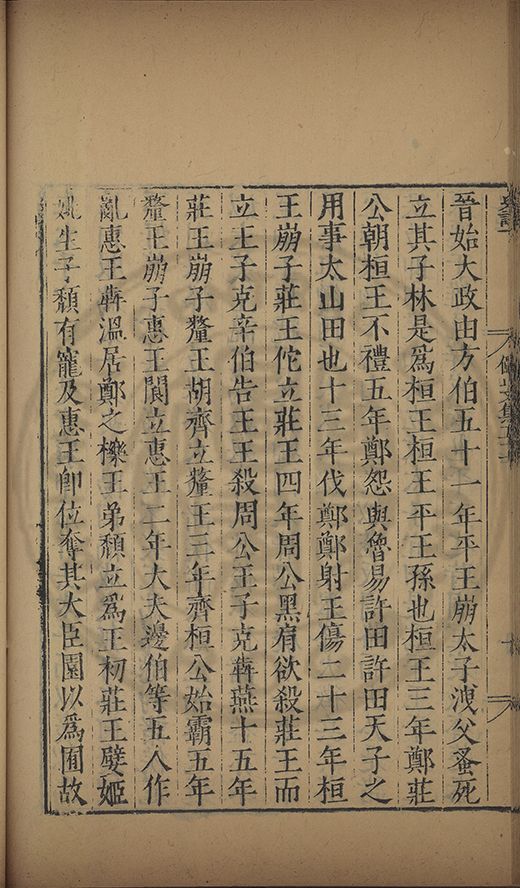 晉始大政由方伯五十一年平王崩太子洩父蚤死
立其子林是爲桓王桓王平王孫也桓王三年鄭莊
公朝桓王不禮五年鄭怨與魯易許田許田天子之
用事太山田也十三年伐鄭鄭射王傷二十三年桓
王崩子莊王佗立莊王四年周公黑肩欲殺莊王而
立王子克辛伯告王王殺周公王子克犇燕十五年
莊王崩子釐王胡齊立釐王三年齊桓公始霸五年
釐王崩子惠王閬立惠王二年大夫邊伯等五人作
亂惠王犇溫居鄭之櫟王弟頹立爲王初莊王嬖姬
姚生子頹有寵及惠王卽位奪其大臣園以爲囿故